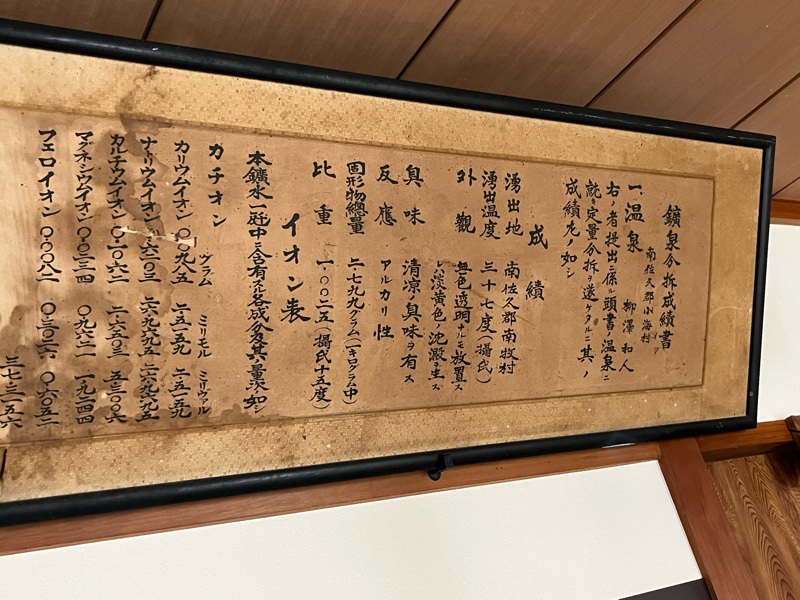 鑛泉分拆成績書
南佐久郡小海村
一、温泉 柳澤和人
右ノ者提出ニ係ル頭書ノ温泉ニ
就キ定量分拆ヲ遂ケタルニ其ノ
成績左ノ如シ
成績
湧出地 南佐久郡南牧村
湧出温度 三十七度(攝氏)
外觀 無色透明ナルモ放置ス
レバ淡黄色ノ沈澱ヲ生ス
臭味 清凉ノ臭味ヲ有ス
反應 アルカリ性
固形物總量 二・七九九グラム(一キログラム中)
比重 一・〇〇二五(攝氏十五度)
イオン表
本鑛水一瓩中ニ含有スル各成分及其量次ノ如シ
カチオン グラム ミリモル ミリヴァル
カリウムイオン 〇・〇九八五 二・五一五九 二・五一五九
ナトリウムイオン 六二〇三 二六・九六九五 二六・九六九五
カルチウムイオン 〇・一〇六二 二・六五〇三 五・三〇〇六
マグネシウムイオン 〇・〇二三四 〇・九六二二 一・九二四四
フェロイオン 〇・〇〇八二 〇・三〇二六 〇・六〇五二
三七・三一五六